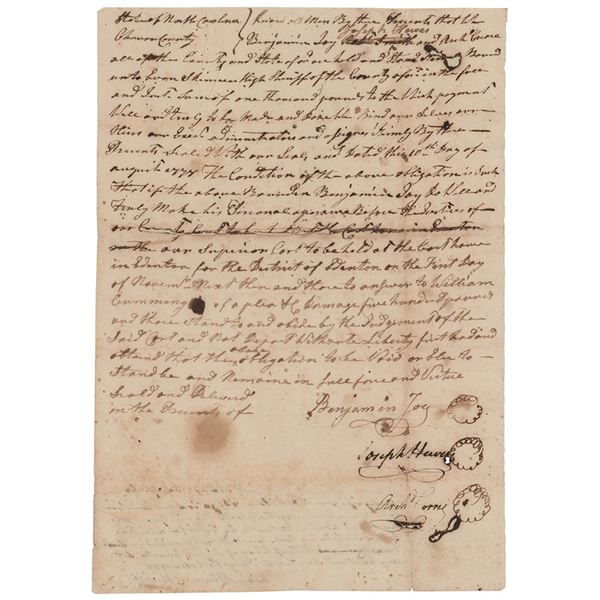 State of North Carolina } Know all Men By these Presents that We
Joseph Hewes
Chowan County } Benjamin Joy and Arch
all of the County and State afore are held and Stand Bound
unto Evan Skinner High Sheriff of the County afore in the full
and Just Sum of one thousand pounds to the Which payment
Well and truly to be Made and Done We Bind our Selves our
Heirs our Exors administrators and assigns Firmly By these
Presents Sealed With our Seals and Dated this 10th Day of
august 1777 The Condition of the above obligation is Such
That if the above Bounden Benjamin Joy do Well and
Truly Make his Personal apearance Before the Justices of
our County Court
our Superior Cort to be held at the Cort house
in Edenton for the District of Edenton on the First Day
of Novemr Next then and there to answer to William
Cumming of a plea &C Damage five hundred pounds
and there Stand to and abide by the Judgement of the
Said Cort and Not Depart Without Liberty first had and
obtand that the above obligation to be Void or Else to
Stand be and Remaine in full force and Virtue
Seald and Deliverd
in the Presents of
Benjamin Joy
Joseph Hewes
Archd